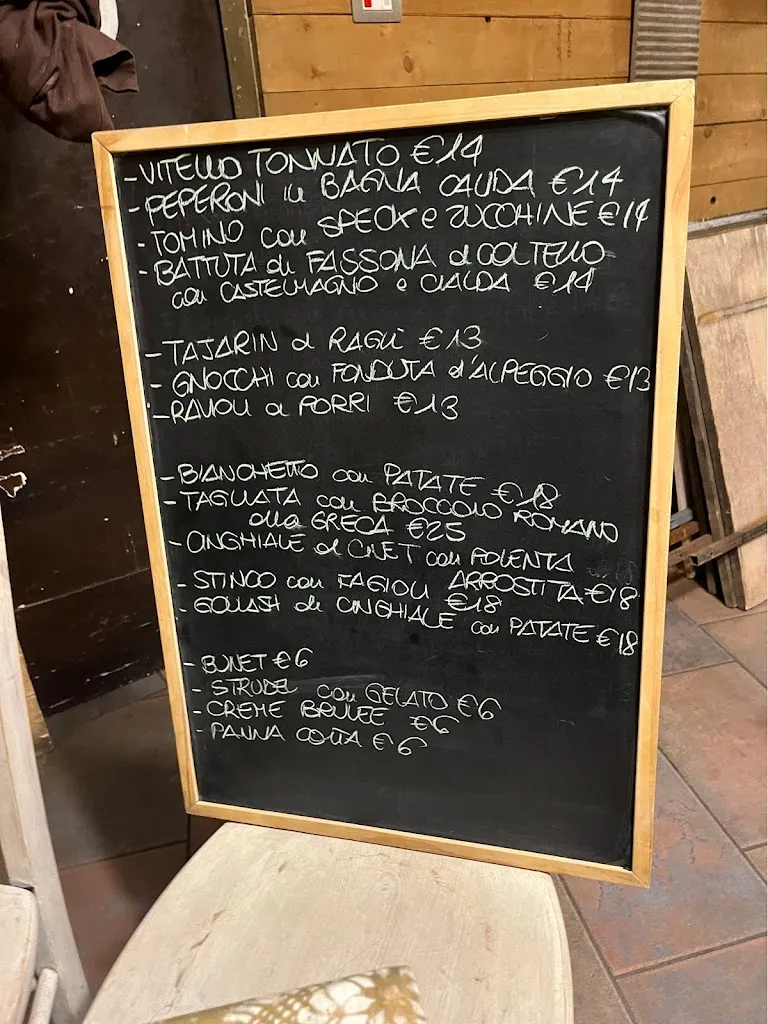 - VITELLO TONNATO €14
- PEPERONI in BAGNA CAUDA €14
- TOMINO con SPECK e ZUCCHINE €14
- BATTUTA di FASSONA al COLTELLO
con CASTELMAGNO e CIALDA €14
- TAJARIN al RAGÙ €13
- GNOCCHI con FONDUTA d'ALPEGGIO €13
- RAVIOLI ai PORRI €13
- BIANCHETTO con PATATE €18
- TAGLIATA con BROCCOLO ROMANO
alla GRECA €25
- CINGHIALE al CIVET con POLENTA
ARROSTITA €18
- STINCO con FAGIOLI €18
- GOULASH di CINGHIALE con PATATE €18
- BUNET €6
- STRUDEL con GELATO €6
- CREME BRULEE €6
- PANNA COTTA €6